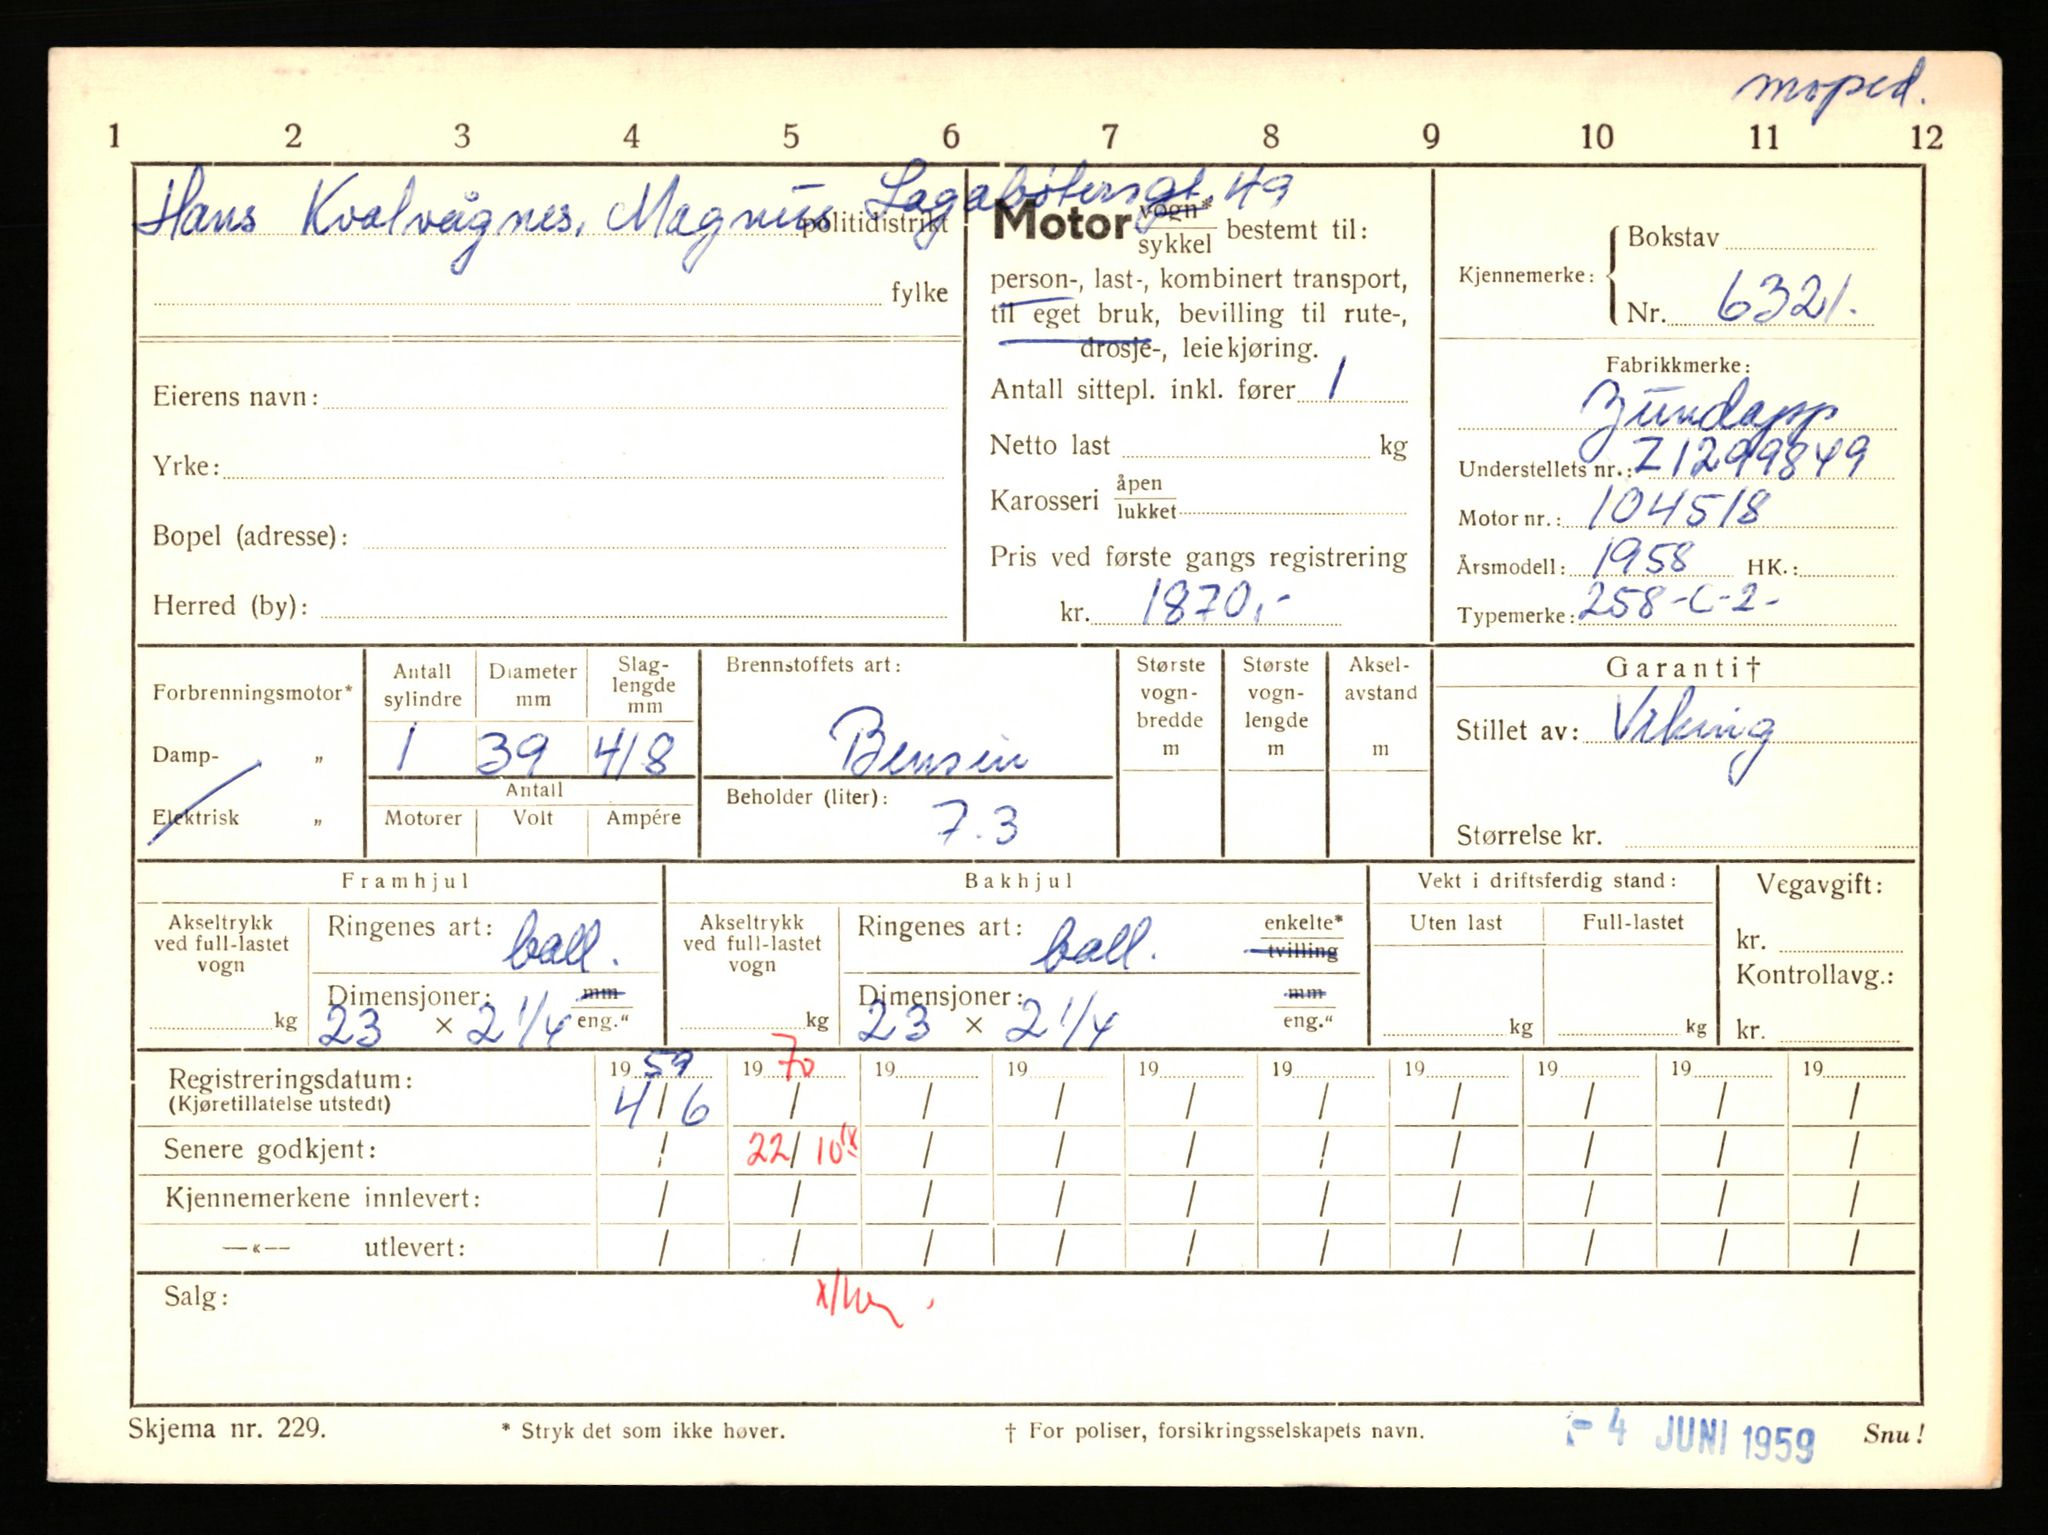 moped.
1 2 3 4 5 6 7 8 9 10 11 12
Hans Kvalvågnes, Magnus Lagabøtersgt. 49
politidistrikt
fylke
Eierens navn:
Yrke:
Bopel (adresse):
Herred (by):
Motor vogn* / sykkel bestemt til:
person-, last-, kombinert transport,
til eget bruk, bevilling til rute-,
drosje-, leiekjøring.
Antall sittepl. inkl. fører 1
Netto last kg
Karosseri åpen / lukket
Pris ved første gangs registrering
kr. 1870,-
Kjennemerke: Bokstav
Nr. 6321.
Fabrikkmerke:
Zündapp
Understellets nr.: Z1299849
Motor nr.: 104518
Årsmodell: 1958 HK.:
Typemerke: 258-C-2-
Forbrenningsmotor*
Damp- „
Elektrisk „
Antall sylindre
Diameter mm
Slag-lengde mm
1 39 41/8
Antall
Motorer Volt Ampére
Brennstoffets art:
Bensin
Beholder (liter):
7.3
Største vogn-bredde m
Største vogn-lengde m
Aksel-avstand m
Garanti†
Stillet av: Viking
Størrelse kr.
Framhjul
Akseltrykk
ved full-lastet
vogn
kg
Ringenes art: ball.
Dimensjoner: mm
23 × 2 1/4 eng."
Bakhjul
Akseltrykk
ved full-lastet
vogn
kg
Ringenes art: ball. enkelte*
tvilling
Dimensjoner: mm
23 × 2 1/4 eng."
Vekt i driftsferdig stand:
Uten last Full-lastet
kg kg
Vegavgift:
kr.
Kontrollavg.:
kr.
Registreringsdatum: 19 59 19 70 19 19 19 19 19 19 19 19
(Kjøretillatelse utstedt) 4/6 / / / / / / / / /
Senere godkjent: / 22/10 / / / / / / / /
Kjennemerkene innlevert: / / / / / / / / / /
—«— utlevert: / / / / / / / / / /
Salg:
Skjema nr. 229. * Stryk det som ikke høver. † For poliser, forsikringsselskapets navn. - 4 JUNI 1959 Snu!